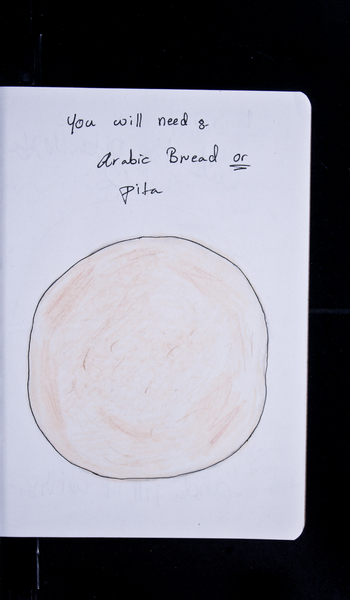 You will need :
Arabic Bread or
pita